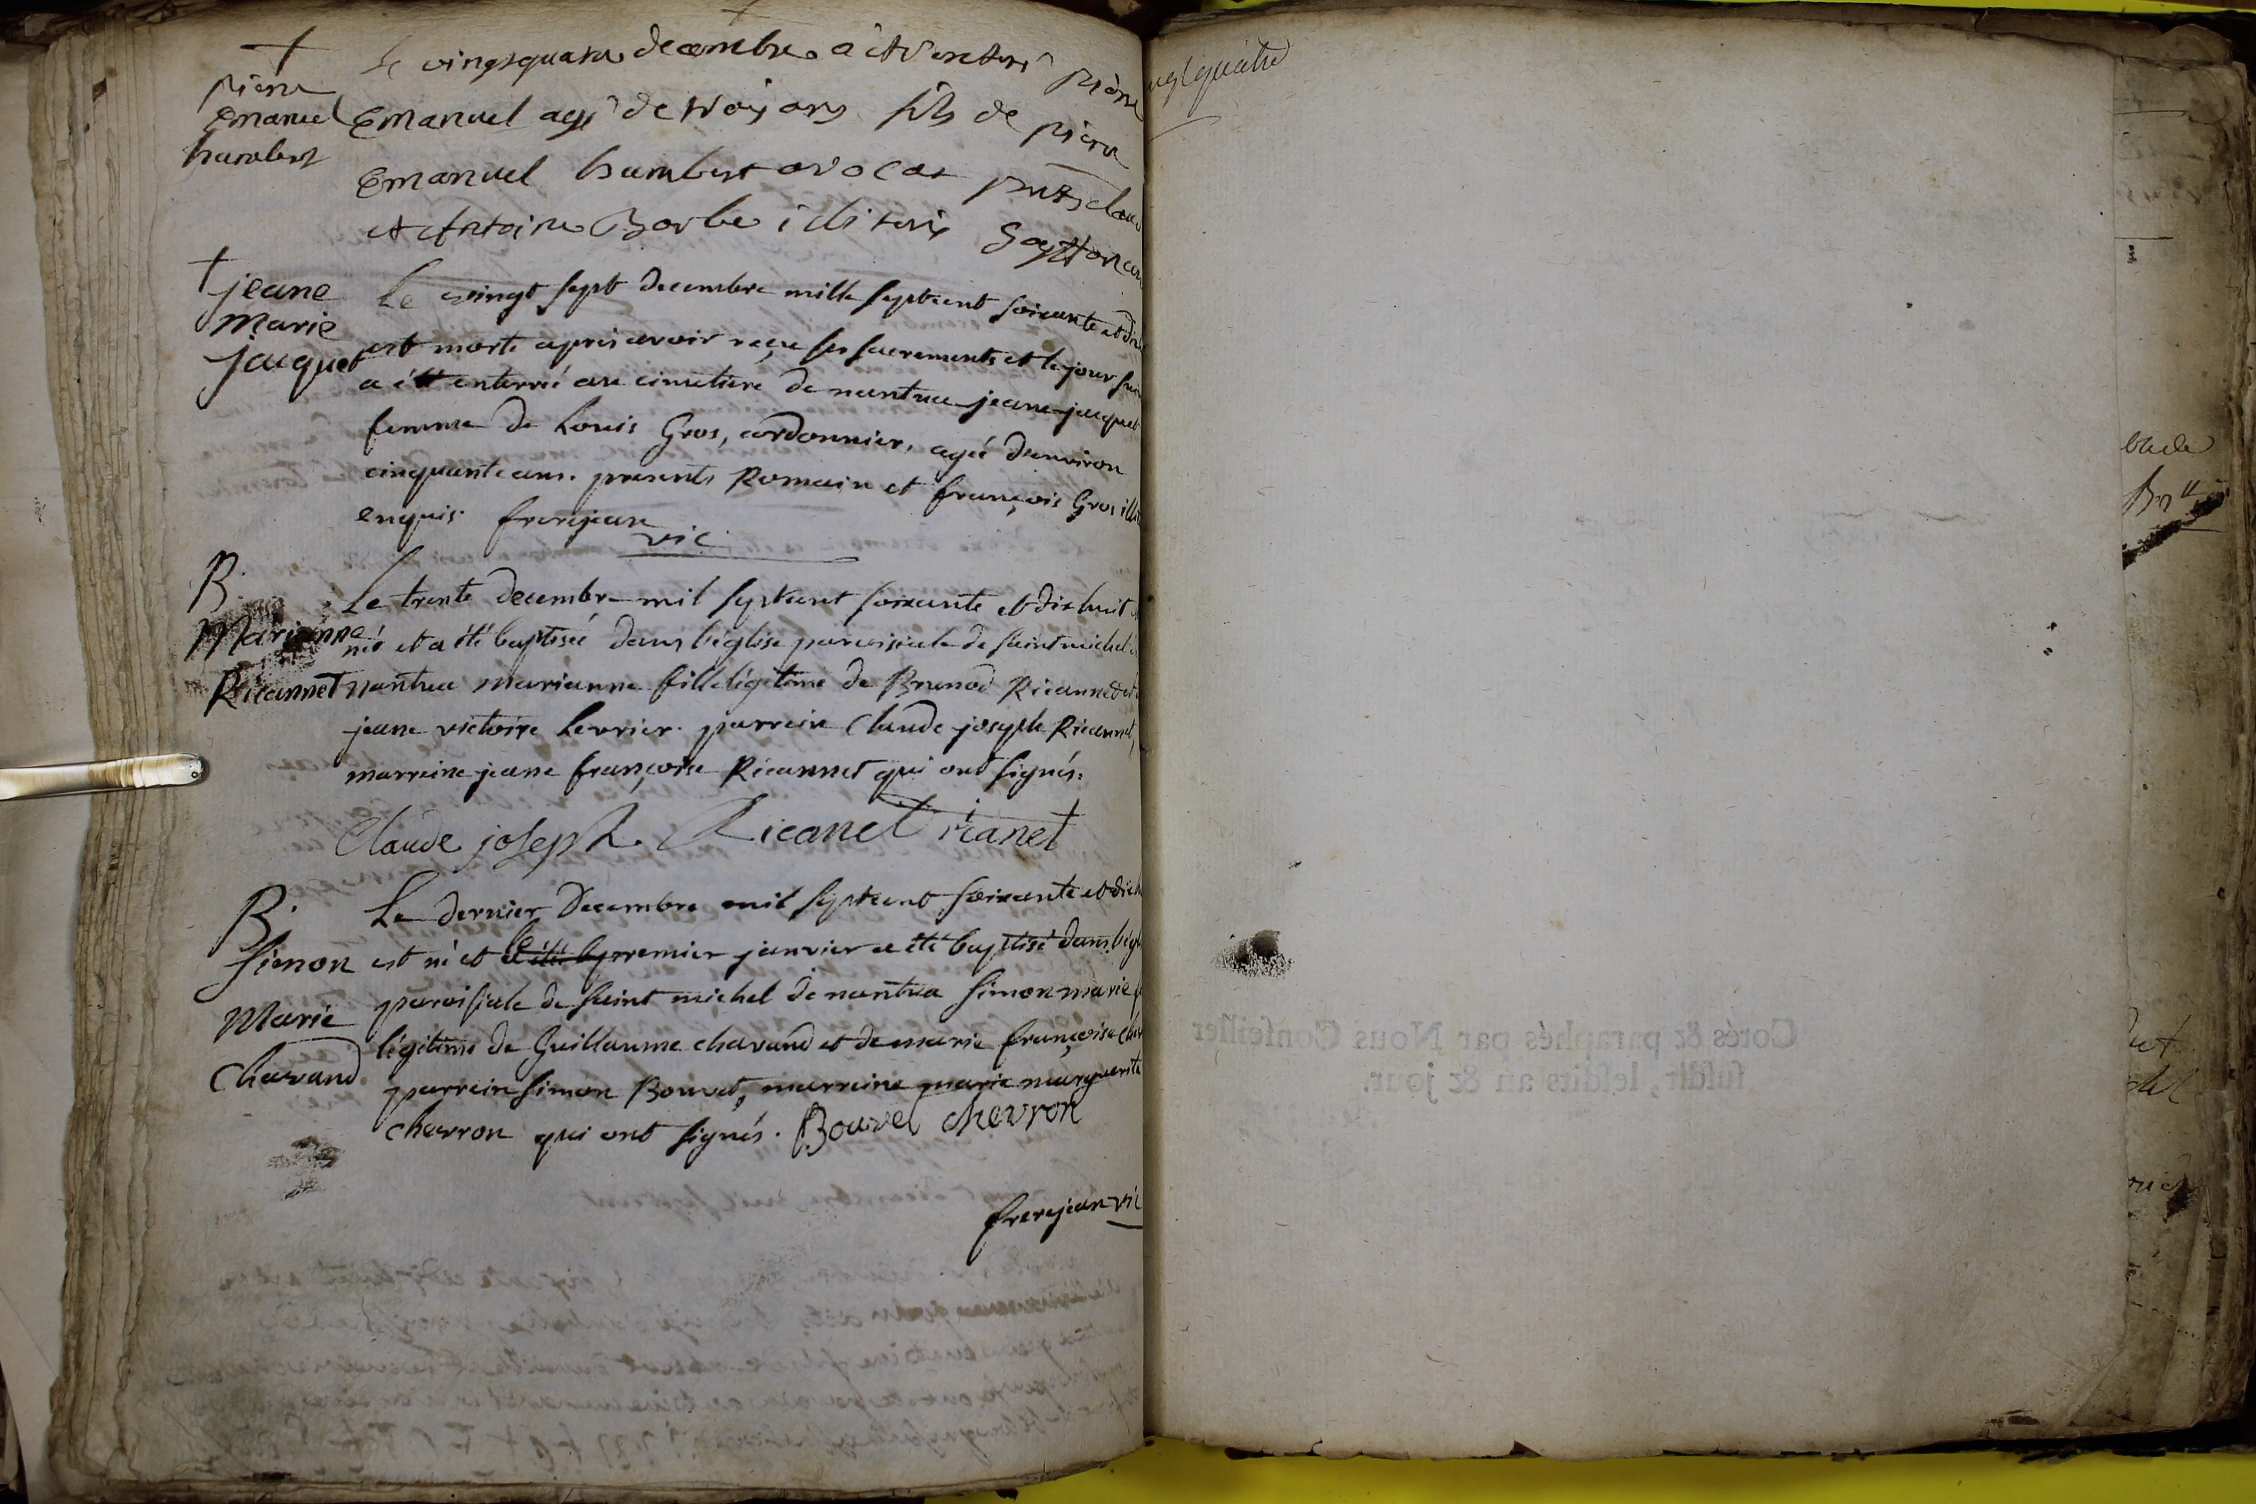 +
pierre
Emanuel
humbert
Le vingtquatre decembre a été enterré pierre
Emanuel agé de trois ans fils de pierre
Emanuel humbert avocat pnts claude
et Antoine Borbe illiterés
+
jeane
Marie
jaquet
Le vingt sept decembre mille septcent soixante et dix
est morte apres avoir reçue ses sacrements et le jour sui
a été enterrée au cimetiere de nantua jeane jaquet
femme de Louis Gros, cordonnier, agée d'environ
cinquante ans. presents Romain et françois Gros illi
enquis frerejean
vic
B.
Marianne
Ricannet
Le trente decembre mil septcent soixante et dix huit
né et a été baptisée dans l'église paroissiale de saint michel
nantua marianne fille légitime de Brunod Ricannet et
jeane victoire Levrier. parrein Claude joseph Ricannet,
marreine jeane françoise Ricannet qui ont signés.
Claude joseph Ricanet ricanet
B.
Simon
Marie
Chavand
Le dernier Decembre mil septcent soixante et dix h
est né et le premier janvier a été baptisé dans l'égl
paroissiale de saint michel de nantua simon marie
légitime de Guillaume chavand et de marie françoise
parrein simon Bouvet, marreine marie marguerite
charron qui ont signés. Bouvel chevron
frerejean vic
ngtquatre
Cotés & paraphés par Nous Conseiller
susdit, lesdits an & jour.